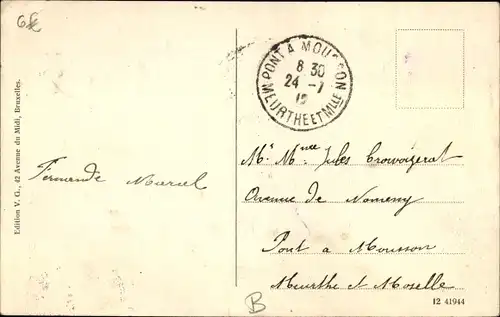 6€
Edition V. G., 42 Avenue du Midi, Bruxelles.
PONT A MOUSSON
8 30
24 - 7
MEURTHE ET MLLE
Fernande Marcel
Mr Mme Jules
Avenue de Nomeny
Pont a Mousson
Meurthe et Moselle
B
12 41944